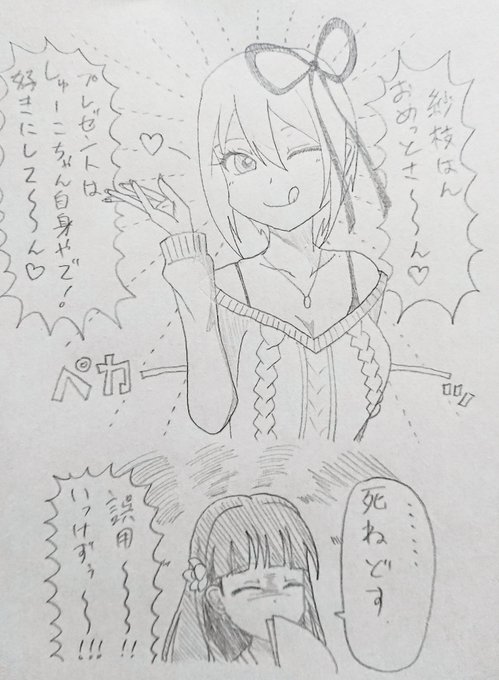 紗枝はん
おめっとさ〜〜ん♡
プレゼントは
しゅーこちゃん自身やで！
好きにして〜〜ん♡
ペカーーッ
……
死ねどす
誤用〜〜〜!!
いっけずぅ〜〜!!!